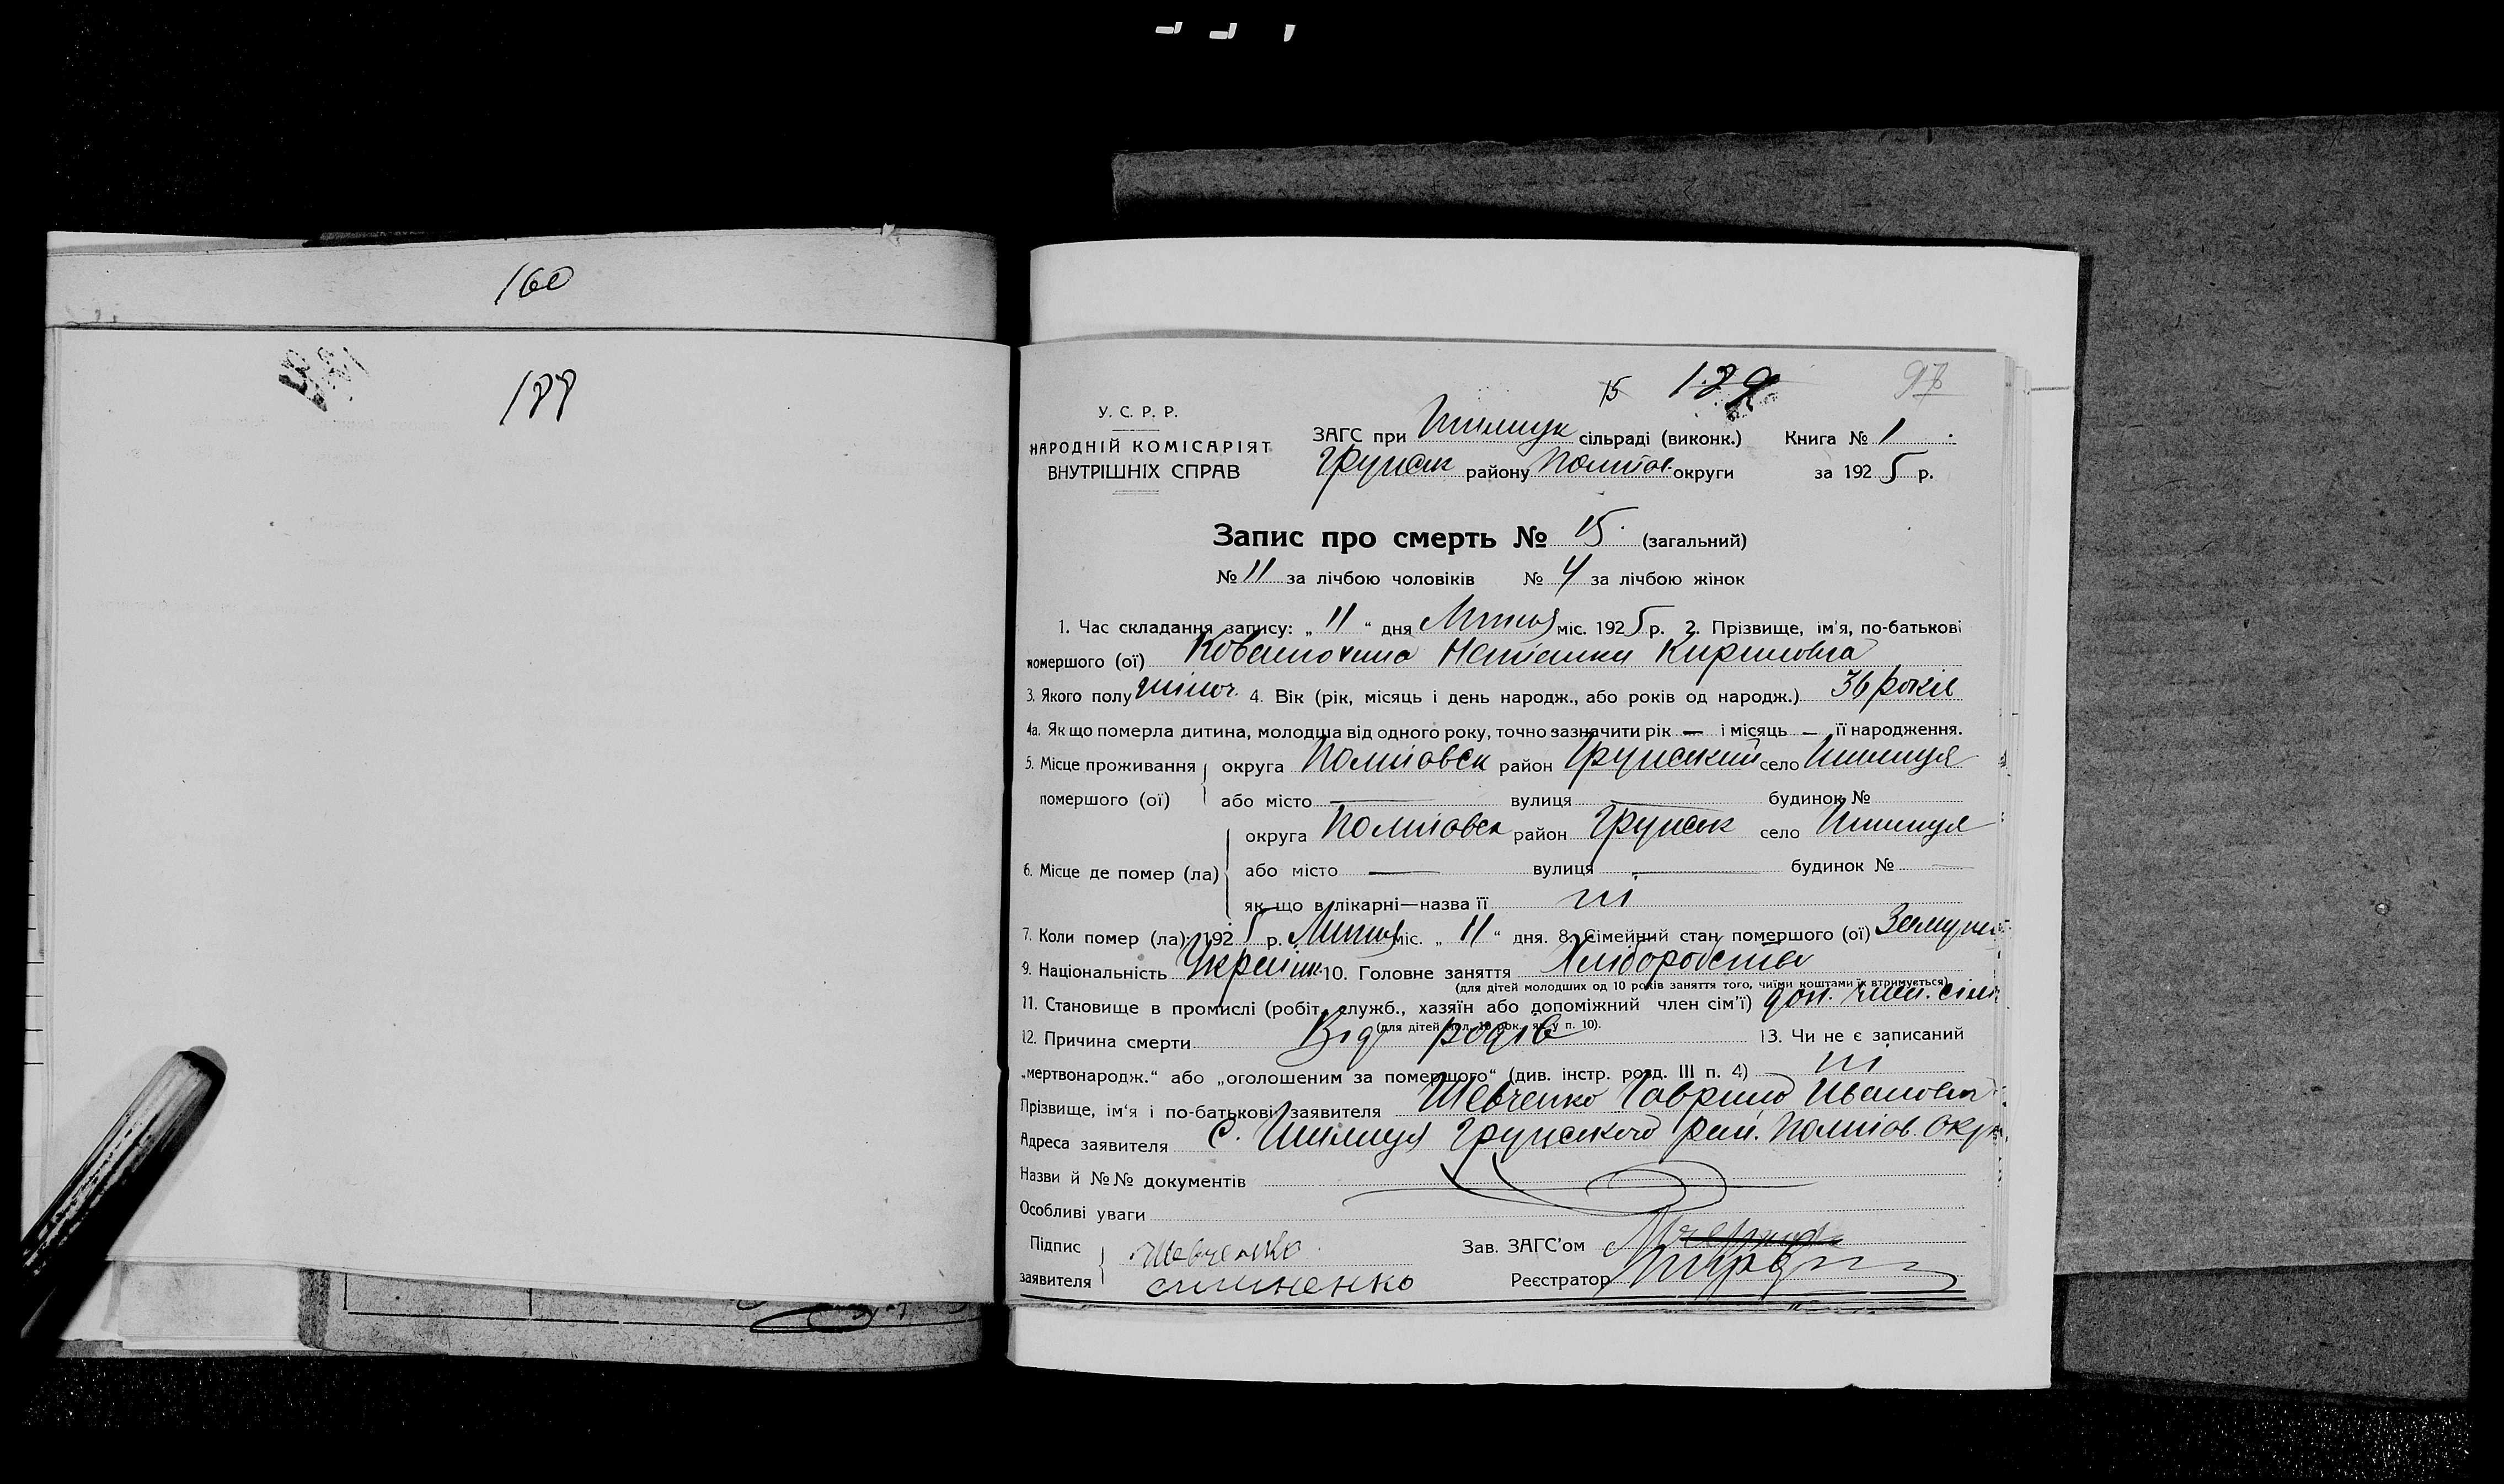 160
188
15 189 97
У. С. Р. Р.
НАРОДНІЙ КОМІСАРІЯТ
ВНУТРІШНІХ СПРАВ
ЗАГС при сільраді (виконк.) Книга № 1
Грунськ району Полтов. округи за 1925 р.
Запис про смерть № 15. (загальний)
№ 11 за лічбою чоловіків № 4 за лічбою жінок
1. Час складання запису: „ 11 “ дня Лютого міс. 1925 р. 2. Прізвище, ім'я, по-батькові
помершого (ої) Кириловна
3. Якого полу жіноч. 4. Вік (рік, місяць і день народж., або років од народж.) 36 років
4а. Як що померла дитина, молодша від одного року, точно зазначити рік — і місяць — її народження.
5. Місце проживання помершого (ої) округа Полтовськ район Грунський село
або місто — вулиця — будинок №
6. Місце де помер (ла) округа Полтовськ район Грунськ село
або місто — вулиця — будинок № —
як що в лікарні—назва її ні
7. Коли помер (ла): 1925 р. Лютого міс. „ 11 “ дня. 8. Сімейний стан помершого (ої) Замужн
9. Національність Україн. 10. Головне заняття Хліборобство
(для дітей молодших од 10 років заняття того, чиїми коштами їх втримується)
11. Становище в промислі (робіт., служб., хазяїн або допоміжний член сім'ї) доп. член. сімї
(для дітей мол. 10 рок. як у п. 10).
12. Причина смерти Від родів 13. Чи не є записаний
„мертвонародж.“ або „оголошеним за помершого“ (див. інстр. розд. III п. 4) ні
Прізвище, ім'я і по-батькові заявителя Шевченко Гаврило Іванович
Адреса заявителя с. Грунського рай. Полтов. окр
Назви й №№ документів
Особливі уваги
Підпис заявителя Шевченко Зав. ЗАГС'ом
Реєстратор